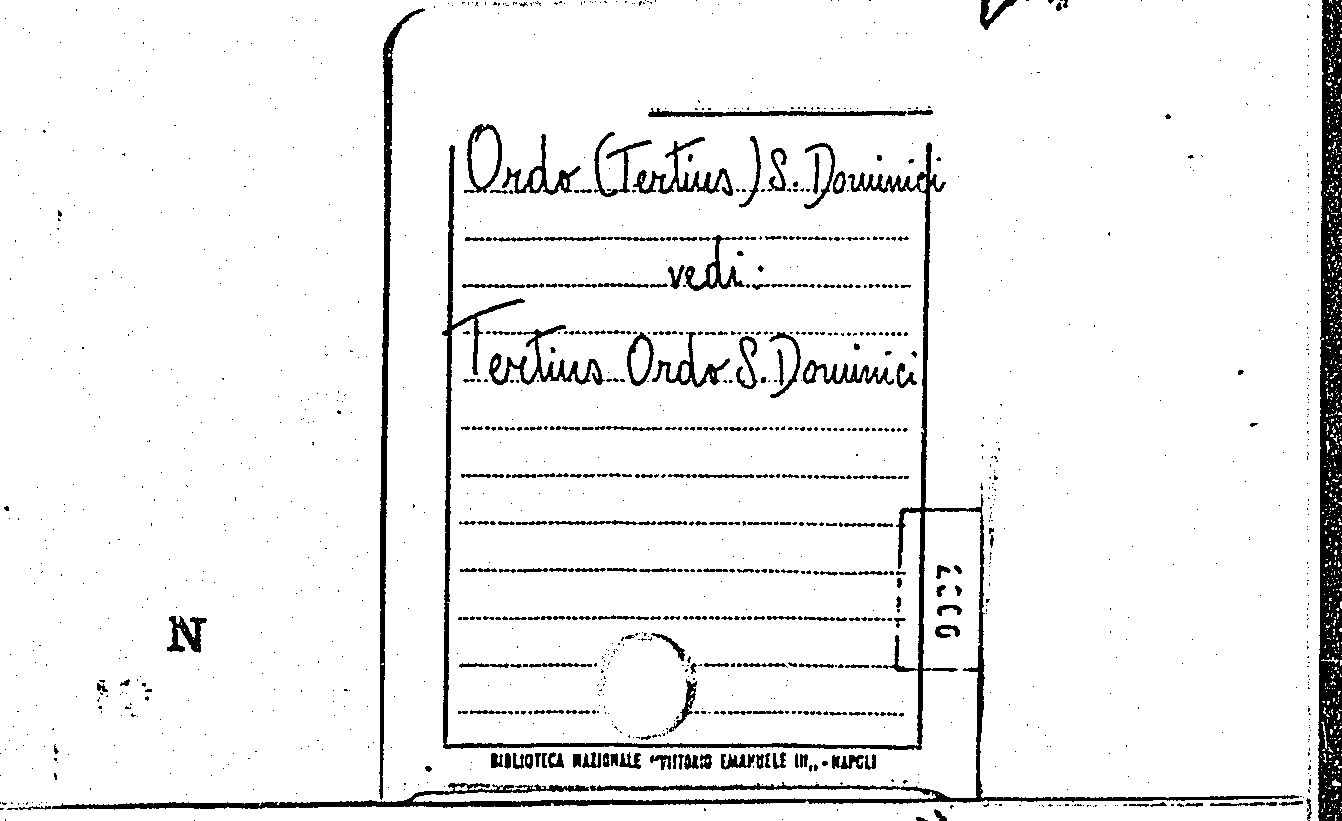 Ordo (Tertius) S. Dominici
vedi:
Tertius Ordo S. Dominici
N
BIBLIOTECA NAZIONALE "VITTORIO EMANUELE III„ - NAPOLI